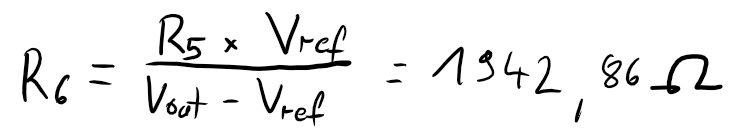 R₆ = (R₅ × Vref) / (Vout - Vref) = 1942,86 Ω